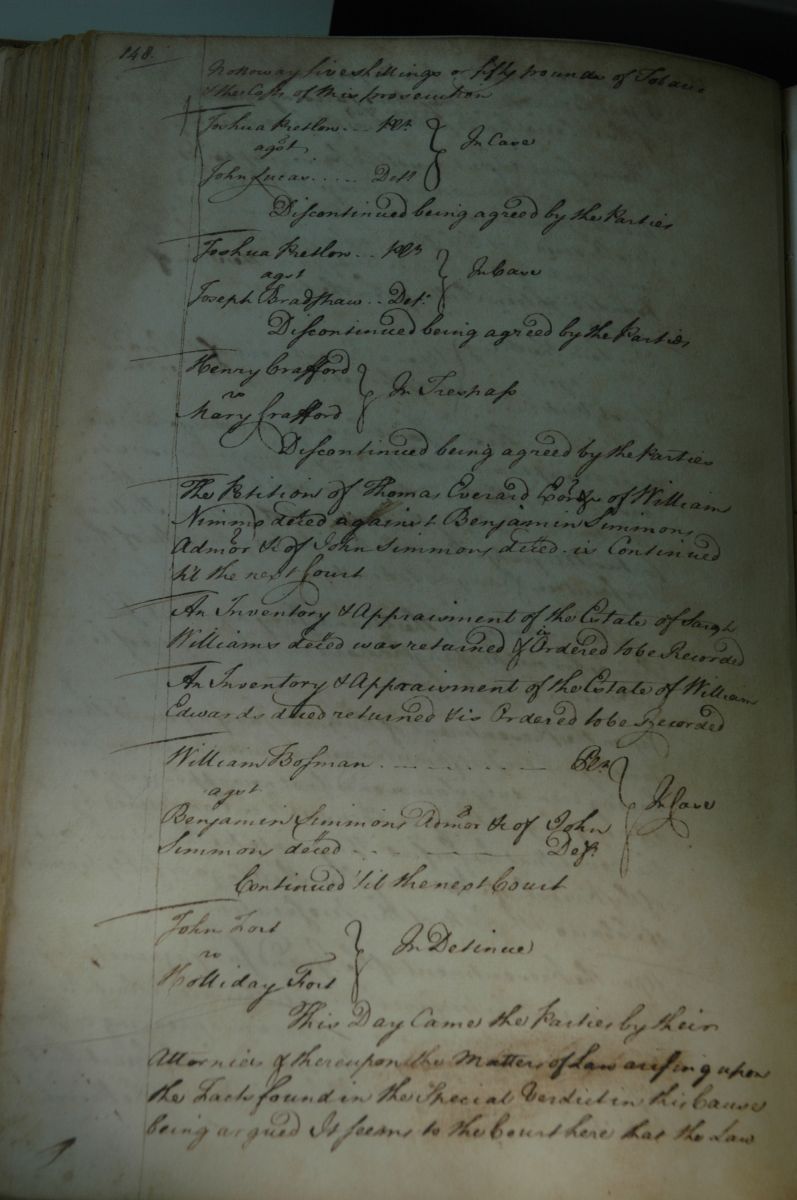 148.
Nottoway five shillings or fifty pounds of Tobacco
& the Costs of this prosecution
Joshua Pretlow ... Plt.
agst
John Lucas ..... Deft
In Case
Discontinued being agreed by the Parties
Joshua Pretlow ... Plt
agst
Joseph Bradshaw .. Deft.
In Case
Discontinued being agreed by the Parties
Henry Crafford
vs
Mary Crafford
In Trespass
Discontinued being agreed by the Parties
The Petition of Thomas Everard of William
Nimmo deced against Benjamin Simmons
Admor &c of John Simmons deced is Continued
til the next Court
An Inventory & Appraisment of the Estate of Sarah
Williams deced was returned & is Ordered to be Recorded
An Inventory & Appraisment of the Estate of William
Edwards deced returned & is Ordered to be Recorded
William Bosman .......... Plt
agst
Benjamin Simmons Admor &c of John
Simmons deced ....... Deft.
In Case
Continued 'til the next Court
John Fort
vs
Holliday Fort
In Detinue
This Day Came the Parties by their
Attornies & thereupon the Matters of Law arising upon
the Facts found in the Special Verdict in this Cause
being argued It seems to the Court here that the Law